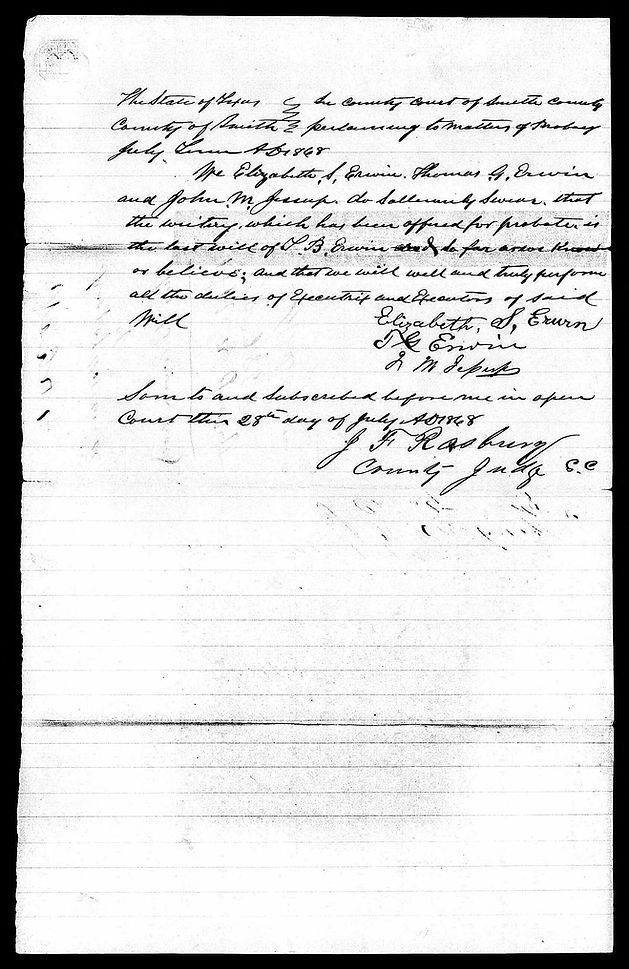 The State of Texas } In County Court of Smith County
County of Smith } pertaining to Matters of Probay
July Term AD 1868
We Elizabeth, S, Erwin. Thomas G, Erwin
and John, M, Jessup. do Sollemnly Swear. that
the writing. which has been offered for probate. is
the last will of T. B, Erwin so far as we Know
or believe; and that we will well and truly perform
all the duties of Executrix and Executors of said
Will
Elizabeth, S, Erwin
T G Erwin
J M Jessup
Sorn to and Subscribed before me in open
Court this 28th day of July AD 1868
J F Rasbury
County Judge S. C